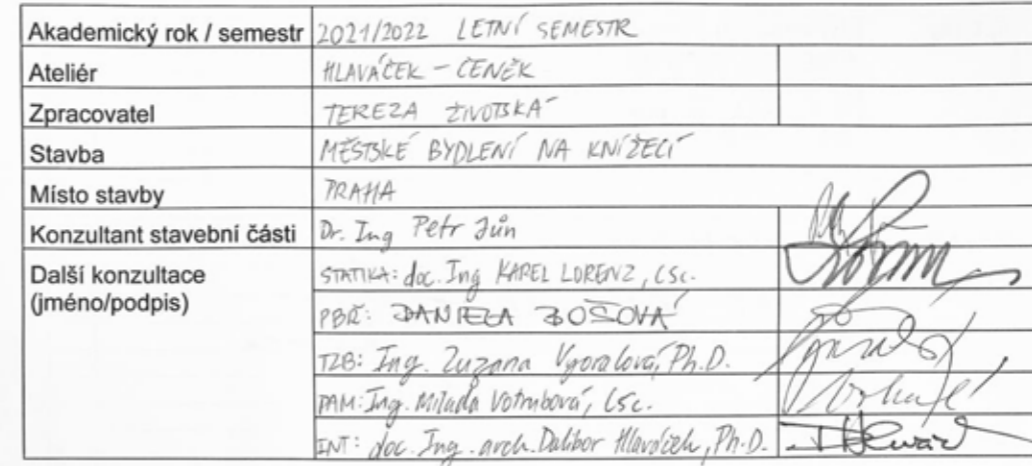 Akademický rok / semestr 2021/2022 LETNÍ SEMESTR
Ateliér HLAVÁČEK - ČENĚK
Zpracovatel TEREZA ŽIVOTSKÁ
Stavba MĚSTSKÉ BYDLENÍ NA KNÍŽECÍ
Místo stavby PRAHA
Konzultant stavební části Dr. Ing Petr Jůn
Další konzultace STATIKA: doc. Ing KAREL LORENZ, CSc.
(jméno/podpis)
PBŘ: DANIELA BOŠOVÁ
TZB: Ing. Zuzana Vyoralová, Ph.D.
PAM: Ing. Milada Votrubová, CSc.
INT: doc. Ing. arch. Dalibor Hlaváček, Ph.D.